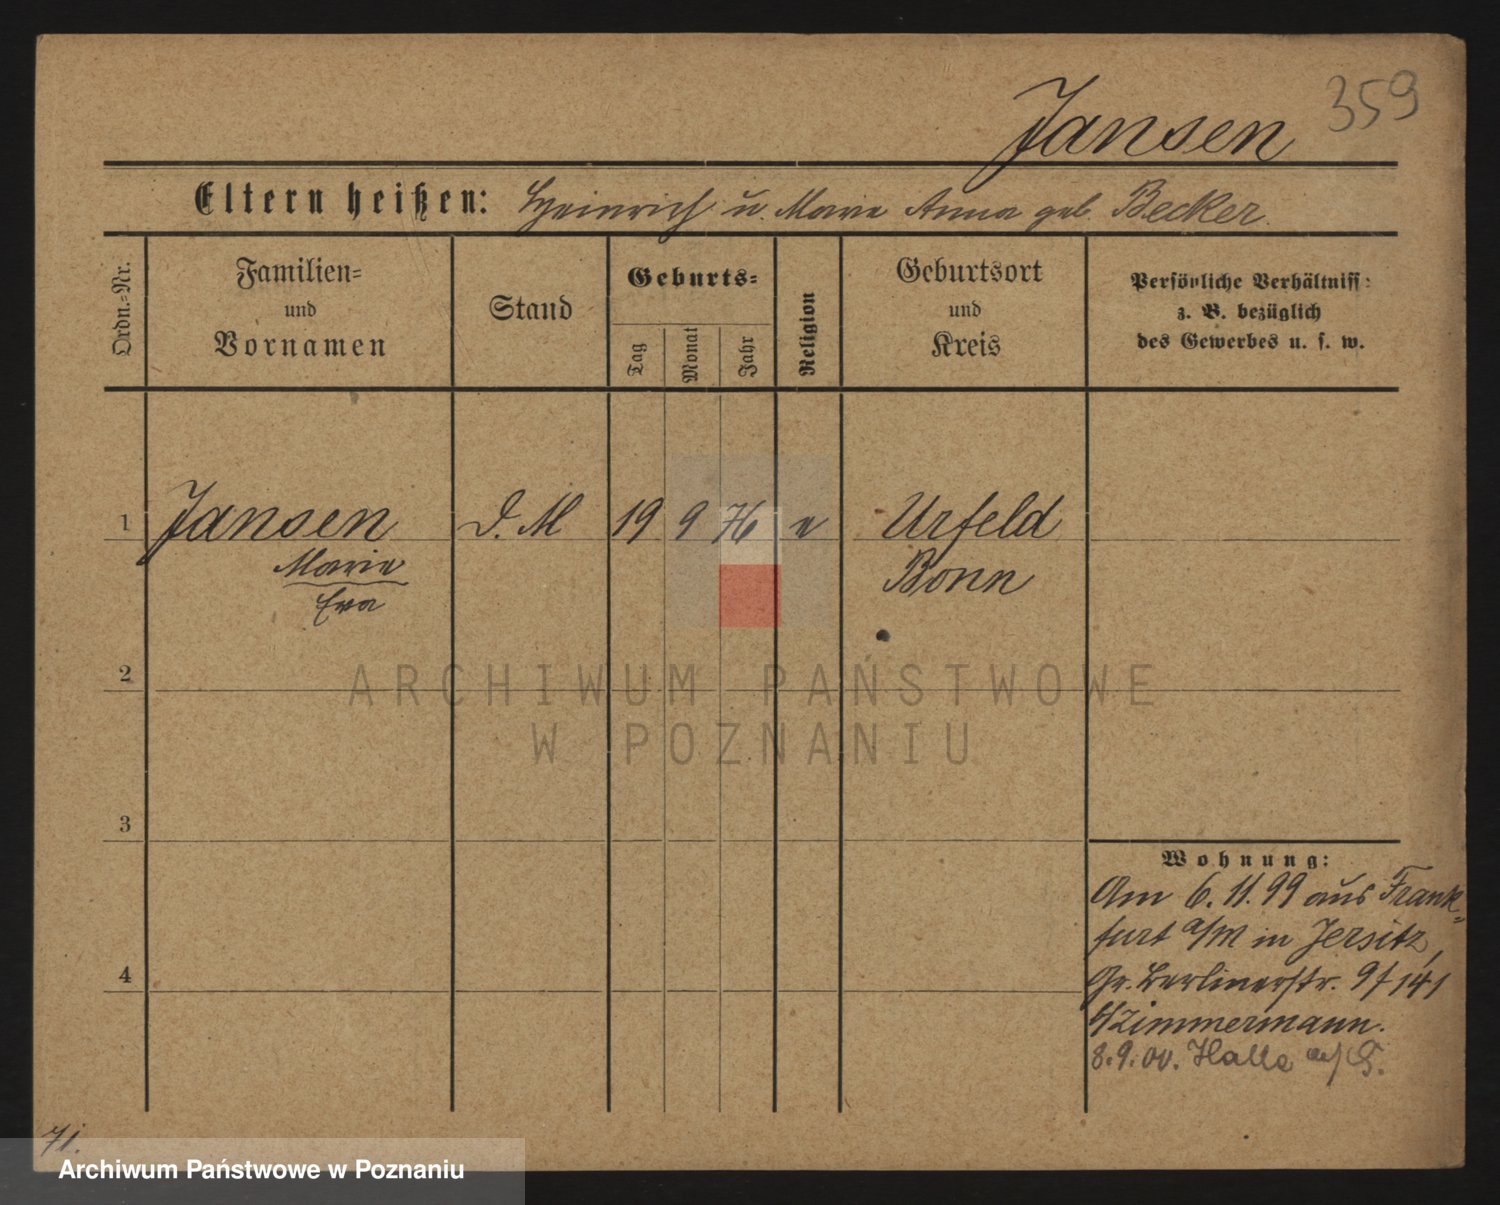 359
Jansen
Eltern heißen: Heinrich u. Marie Anna geb. Becker.
Ordn.-Nr.
Familien- und Vornamen
Stand
Geburts-
Tag
Monat
Jahr
Religion
Geburtsort und Kreis
Persönliche Verhältniss: z. B. bezüglich des Gewerbes u. s. w.
1 Jansen D. M 19 9 76 e Urfeld
Marie Bonn
Eva
2
ARCHIWUM PAŃSTWOWE
W POZNANIU
3
Wohnung:
Am 6. 11. 99 aus Frank-
furt a/M in Jersitz,
4 Gr. Berlinerstr. 9/141
b/Zimmermann.
8. 9. 00. Halle a/S.
71.
Archiwum Państwowe w Poznaniu